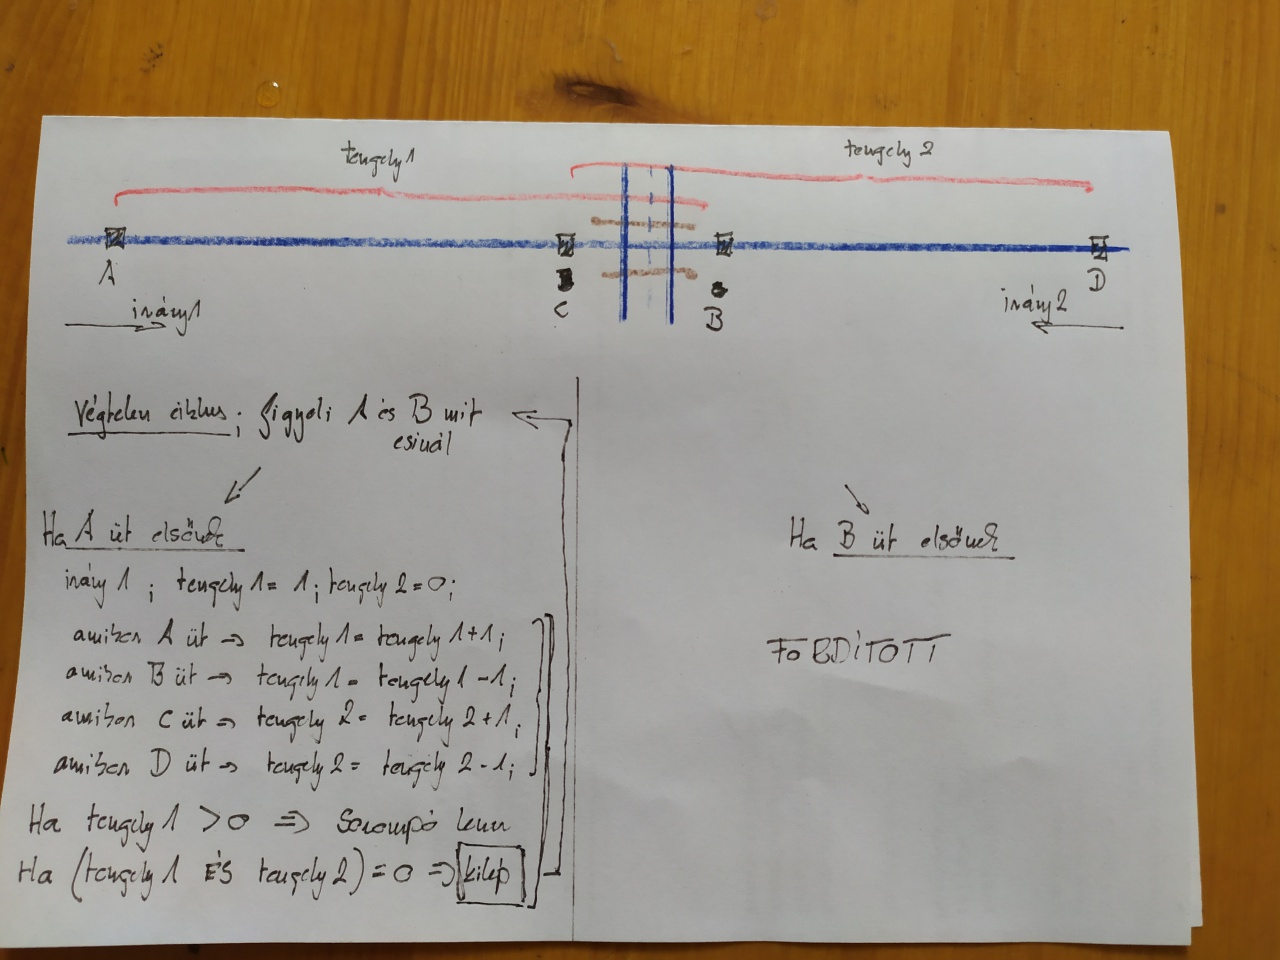 tengely 1
tengely 2
A
C
B
D
irány 1
irány 2
Végtelen ciklus; figyeli A és B mit
csinál
Ha A üt elsőnek
irány 1 ; tengely 1 = 1; tengely 2 = 0;
amikor A üt ⇒ tengely 1 = tengely 1 + 1;
amikor B üt ⇒ tengely 1 = tengely 1 - 1;
amikor C üt ⇒ tengely 2 = tengely 2 + 1;
amikor D üt ⇒ tengely 2 = tengely 2 - 1;
Ha tengely 1 > 0 ⇒ Sorompó lenn
Ha (tengely 1 ÉS tengely 2) = 0 ⇒ kilép
Ha B üt elsőnek
FORDÍTOTT